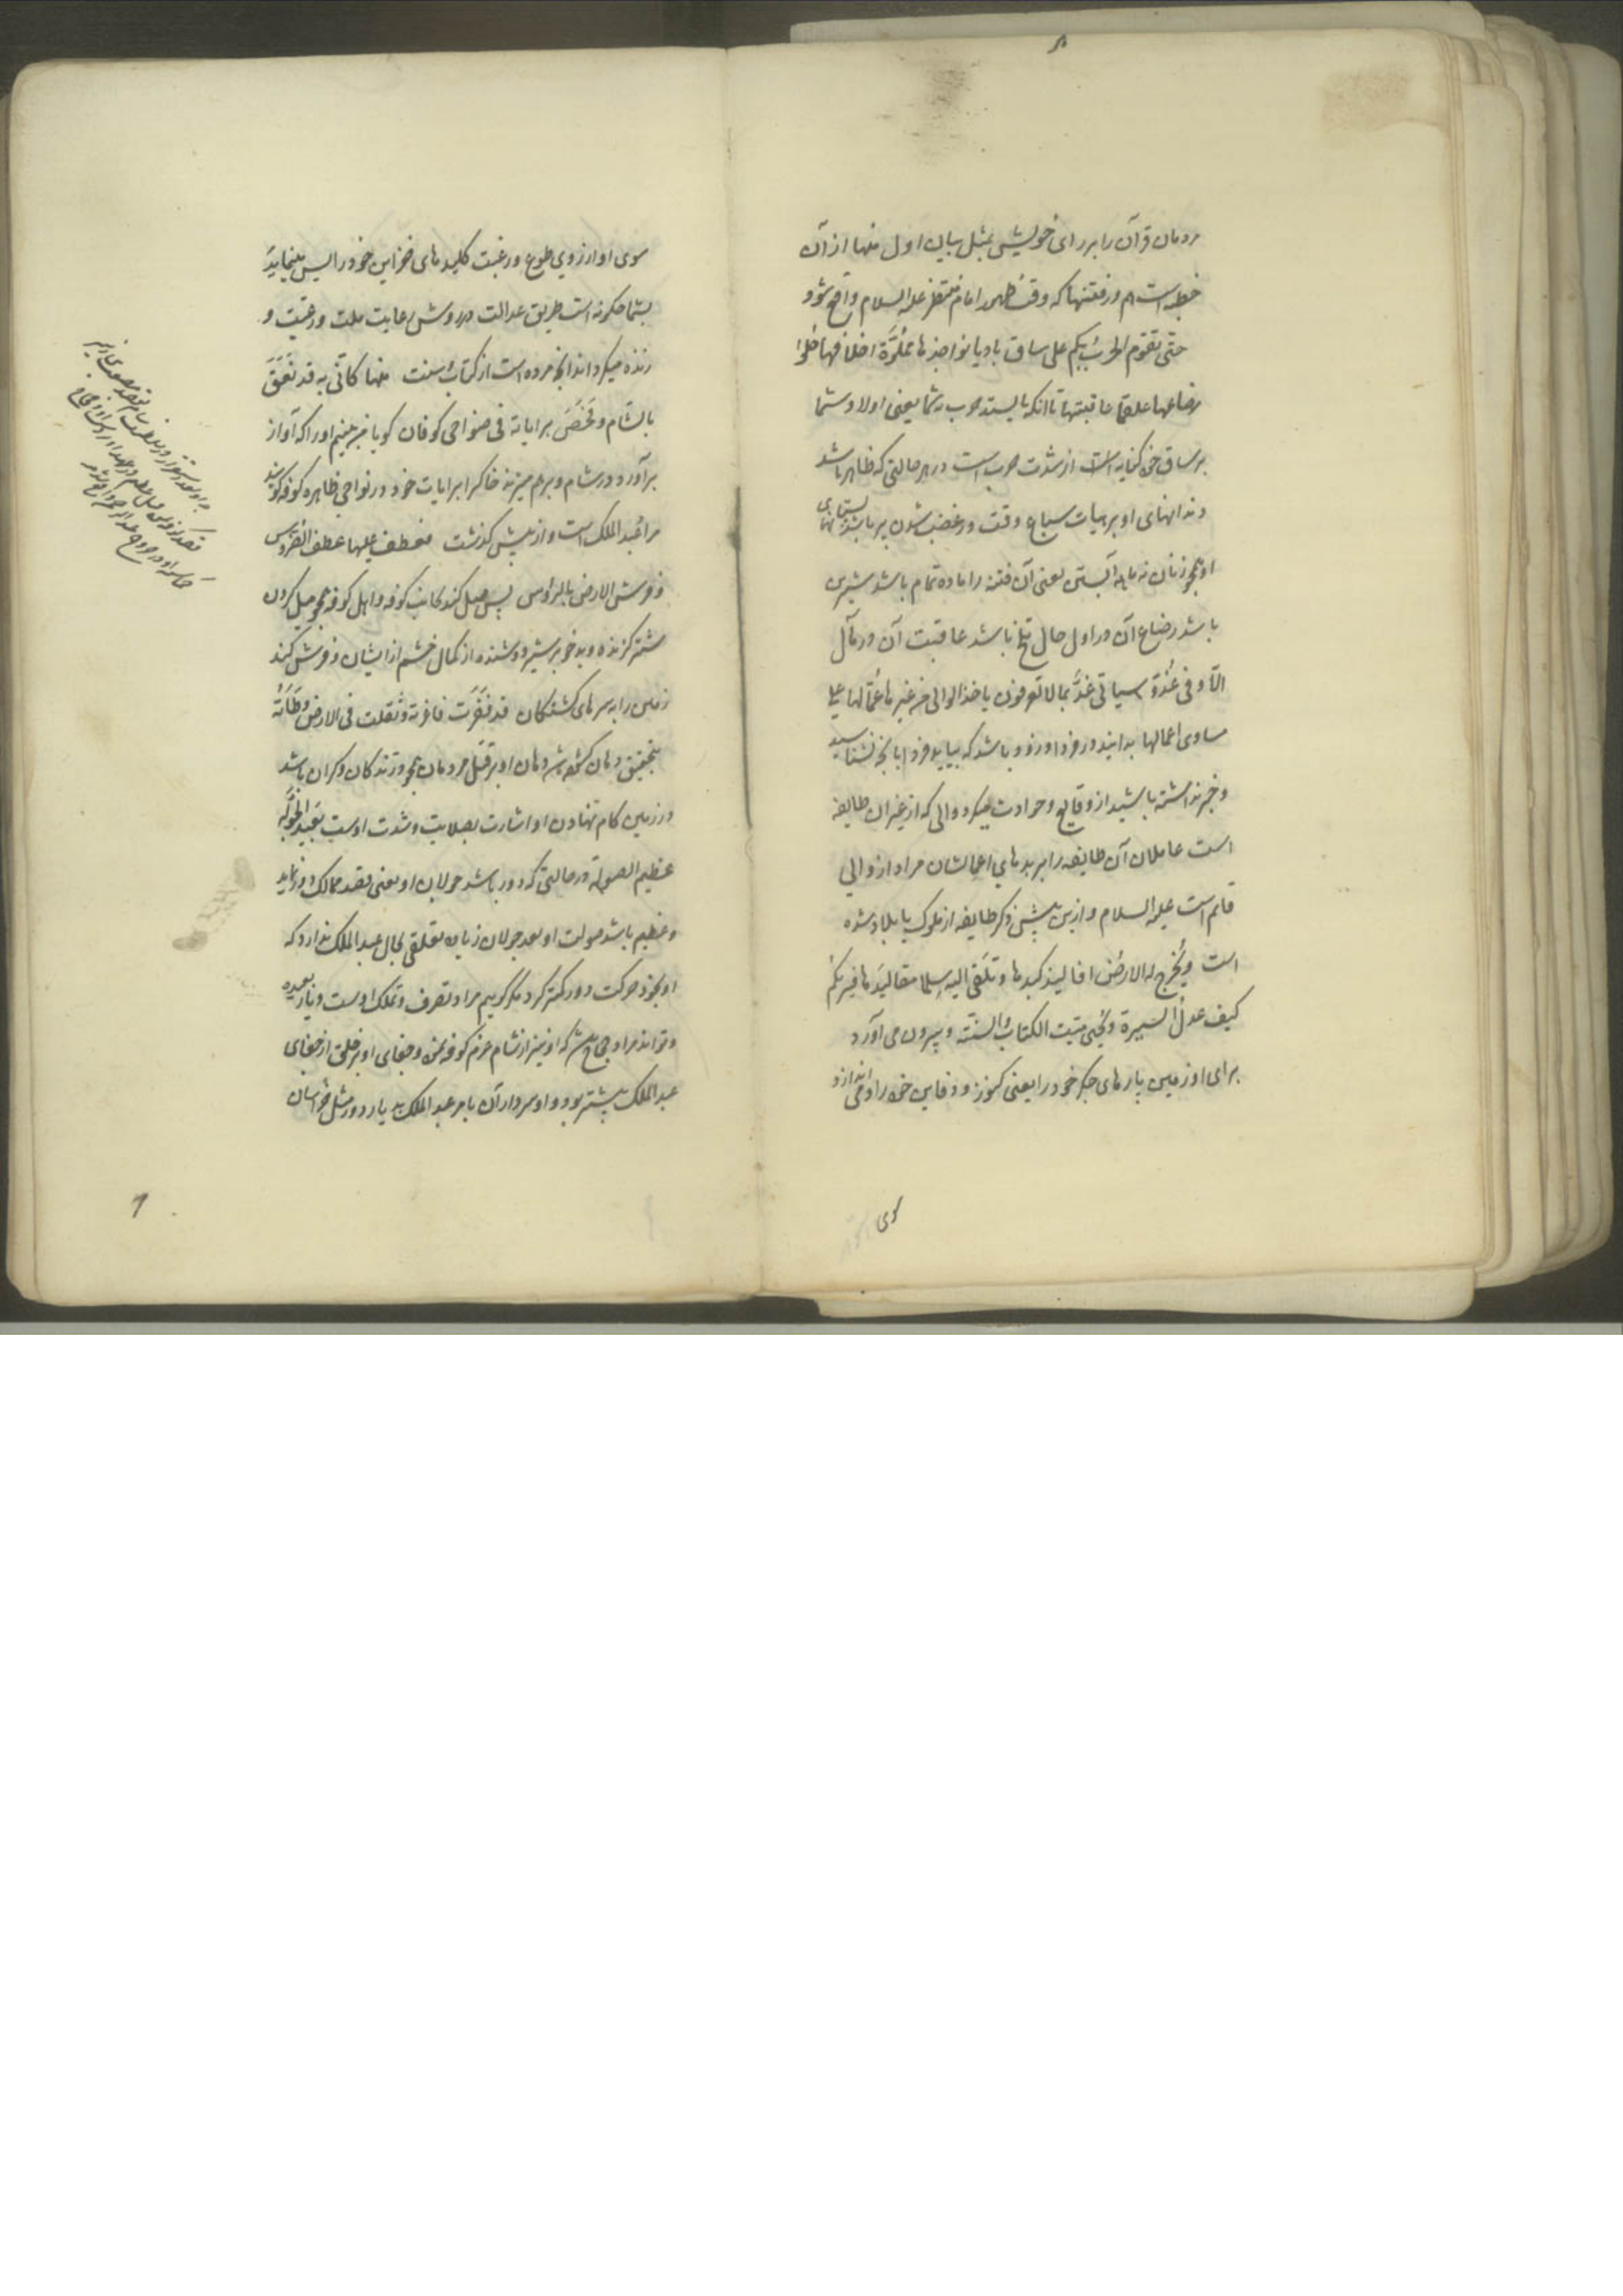 مردمان قرآن را بر رای خویش بمثل بیان اول منها از آن
خطبه است هم در فتنهٔا که وقت ظهور امام منتظر علیه السلام واقع شود
حتی تقوم الحرب بکم علی ساق بادیا نواجذها مملوّة اخلافها حلوا
رضاعها علقما عاقبتها تا آنکه بایستد حرب بشما یعنی اولاد شما
بر ساق خود کنایه است از شدت حرب است در هر حالتی که ظاهر باشد
دندانهای او بر هیات سباع وقت در غضب شدن پر باشد پستانهای
او همچو زنان نه ماهه آبستن یعنی آن فتنه را ماده تمام باشد شیرین
باشد رضاع آن در اول حال تلخ باشد عاقبت آن در مآل
الا و فی غد و سیاتی غد بما لا تعرفون یاخذ الوالی من غیرها عمالها علی
مساوی اعمالها بدانید در فردا و زود باشد که بیاید فردا بآنچه نشناسید
و خبر نداشته باشید از وقایع و حوادث میگیرد والی که از غیر آن طایفه
است عاملان آن طایفه را بر بدهای اعمالشان مراد از والی
قائم است علیه السلام و ازین پیش ذکر طایفه از ملوک یا بلاد شده
است و تخرج له الارض افالیذ کبدها و تلقی الیه سلما مقالیدها فیریکم
کیف عدل السیرة و یحیی میت الکتاب و السنة و بیرون می آورد
برای او زمین پارهای جگر خود را یعنی کنوز و دفاین خود را و می اندازد
سوی
سوی او از روی طوع و رغبت کلیدهای خزاین خود را پس مینماید
بشما چگونه است طریق عدالت در روش رعایت ملت و رعیت و
زنده میگرداند آنچه مرده است از کتاب و سنت منها کانی به قد نعق
بالشام و فحص برایاته فی ضواحی کوفان گویا می بینم او را که آواز
برآورد در شام و بر هم میزند خاک را برایات خود در نواحی ظاهره کوفه
مراد عبد الملک است و از پیش گذشت فعطف علیها عطف الضروس
و فرش الارض بالرؤس پس میل کند بجانب کوفه و اهل کوفه همچو میل کردن
شتر گزنده و بدخو بر شیر دوشنده از کمال خشم از ایشان و فرش کند
زمین را به سرهای کشتگان قد فغرت فاغرته و ثقلت فی الارض وطأته
بتحقیق دهان گشوده شد دهان او بر قتل مردمان همچو درندگان و گران باشد
در زمین گام نهادن او اشارت بصلابت و شدت اوست بعید الجولة
عظیم الصولة در حالتی که دور باشد جولان او یعنی قصد ممالک دور نماید
و عظیم باشد صولت او بعد جولان زیاده تعلقی بحال عبد الملک ندارد که
او بخود حرکت دور کمتر کرد مگر گوییم مراد تصرف و تملک اوست دیار بعیده
و تواند مراد حجاج باشد که او نیز از شام عزم کوفه نمود و جفای او بر خلق از جفای
عبد الملک بیشتر بود و او سردار آن بامر عبد الملک به دیار دور مثل خراسان